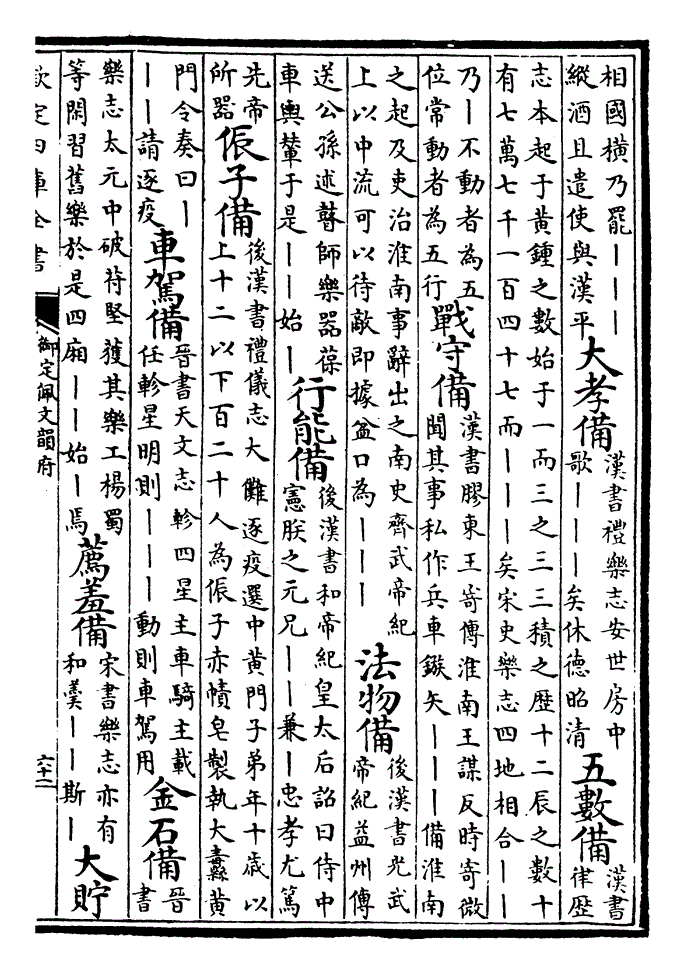 相國橫乃罷｜｜｜
縱酒且遣使與漢平
大孝備
漢書禮樂志安世房中
歌｜｜｜矣休德昭清
五數備
漢書
律歷
志本起于黃鍾之數始于一而三之三三積之歷十二辰之數十
有七萬七千一百四十七而｜｜｜矣宋史樂志四地相合｜｜
乃｜不動者為五
位常動者為五行
戰守備
漢書膠東王寄傳淮南王謀反時寄微
聞其事私作兵車鏃矢｜｜｜備淮南
之起及吏治淮南事辭出之南史齊武帝紀
上以中流可以待敵即據盆口為｜｜｜
法物備
後漢書光武
帝紀益州傳
送公孫述瞽師樂器葆
車輿輦于是｜｜始｜
行能備
後漢書和帝紀皇太后詔曰侍中
憲朕之元兄｜｜兼｜忠孝尤篤
先帝
所器
侲子備
後漢書禮儀志大儺逐疫選中黃門子弟年十歲以
上十二以下百二十人為侲子赤幘皂製執大鼗黃
門令奏曰｜
｜｜請逐疫
車駕備
晉書天文志軫四星主車騎主載
任軫星明則｜｜｜動則車駕用
金石備
晉
書
樂志太元中破苻堅獲其樂工楊蜀
等閑習舊樂於是四廂｜｜始｜焉
薦羞備
宋書樂志亦有
和羹｜｜斯｜
大貯
欽定四庫全書
御定佩文韻府
六十二